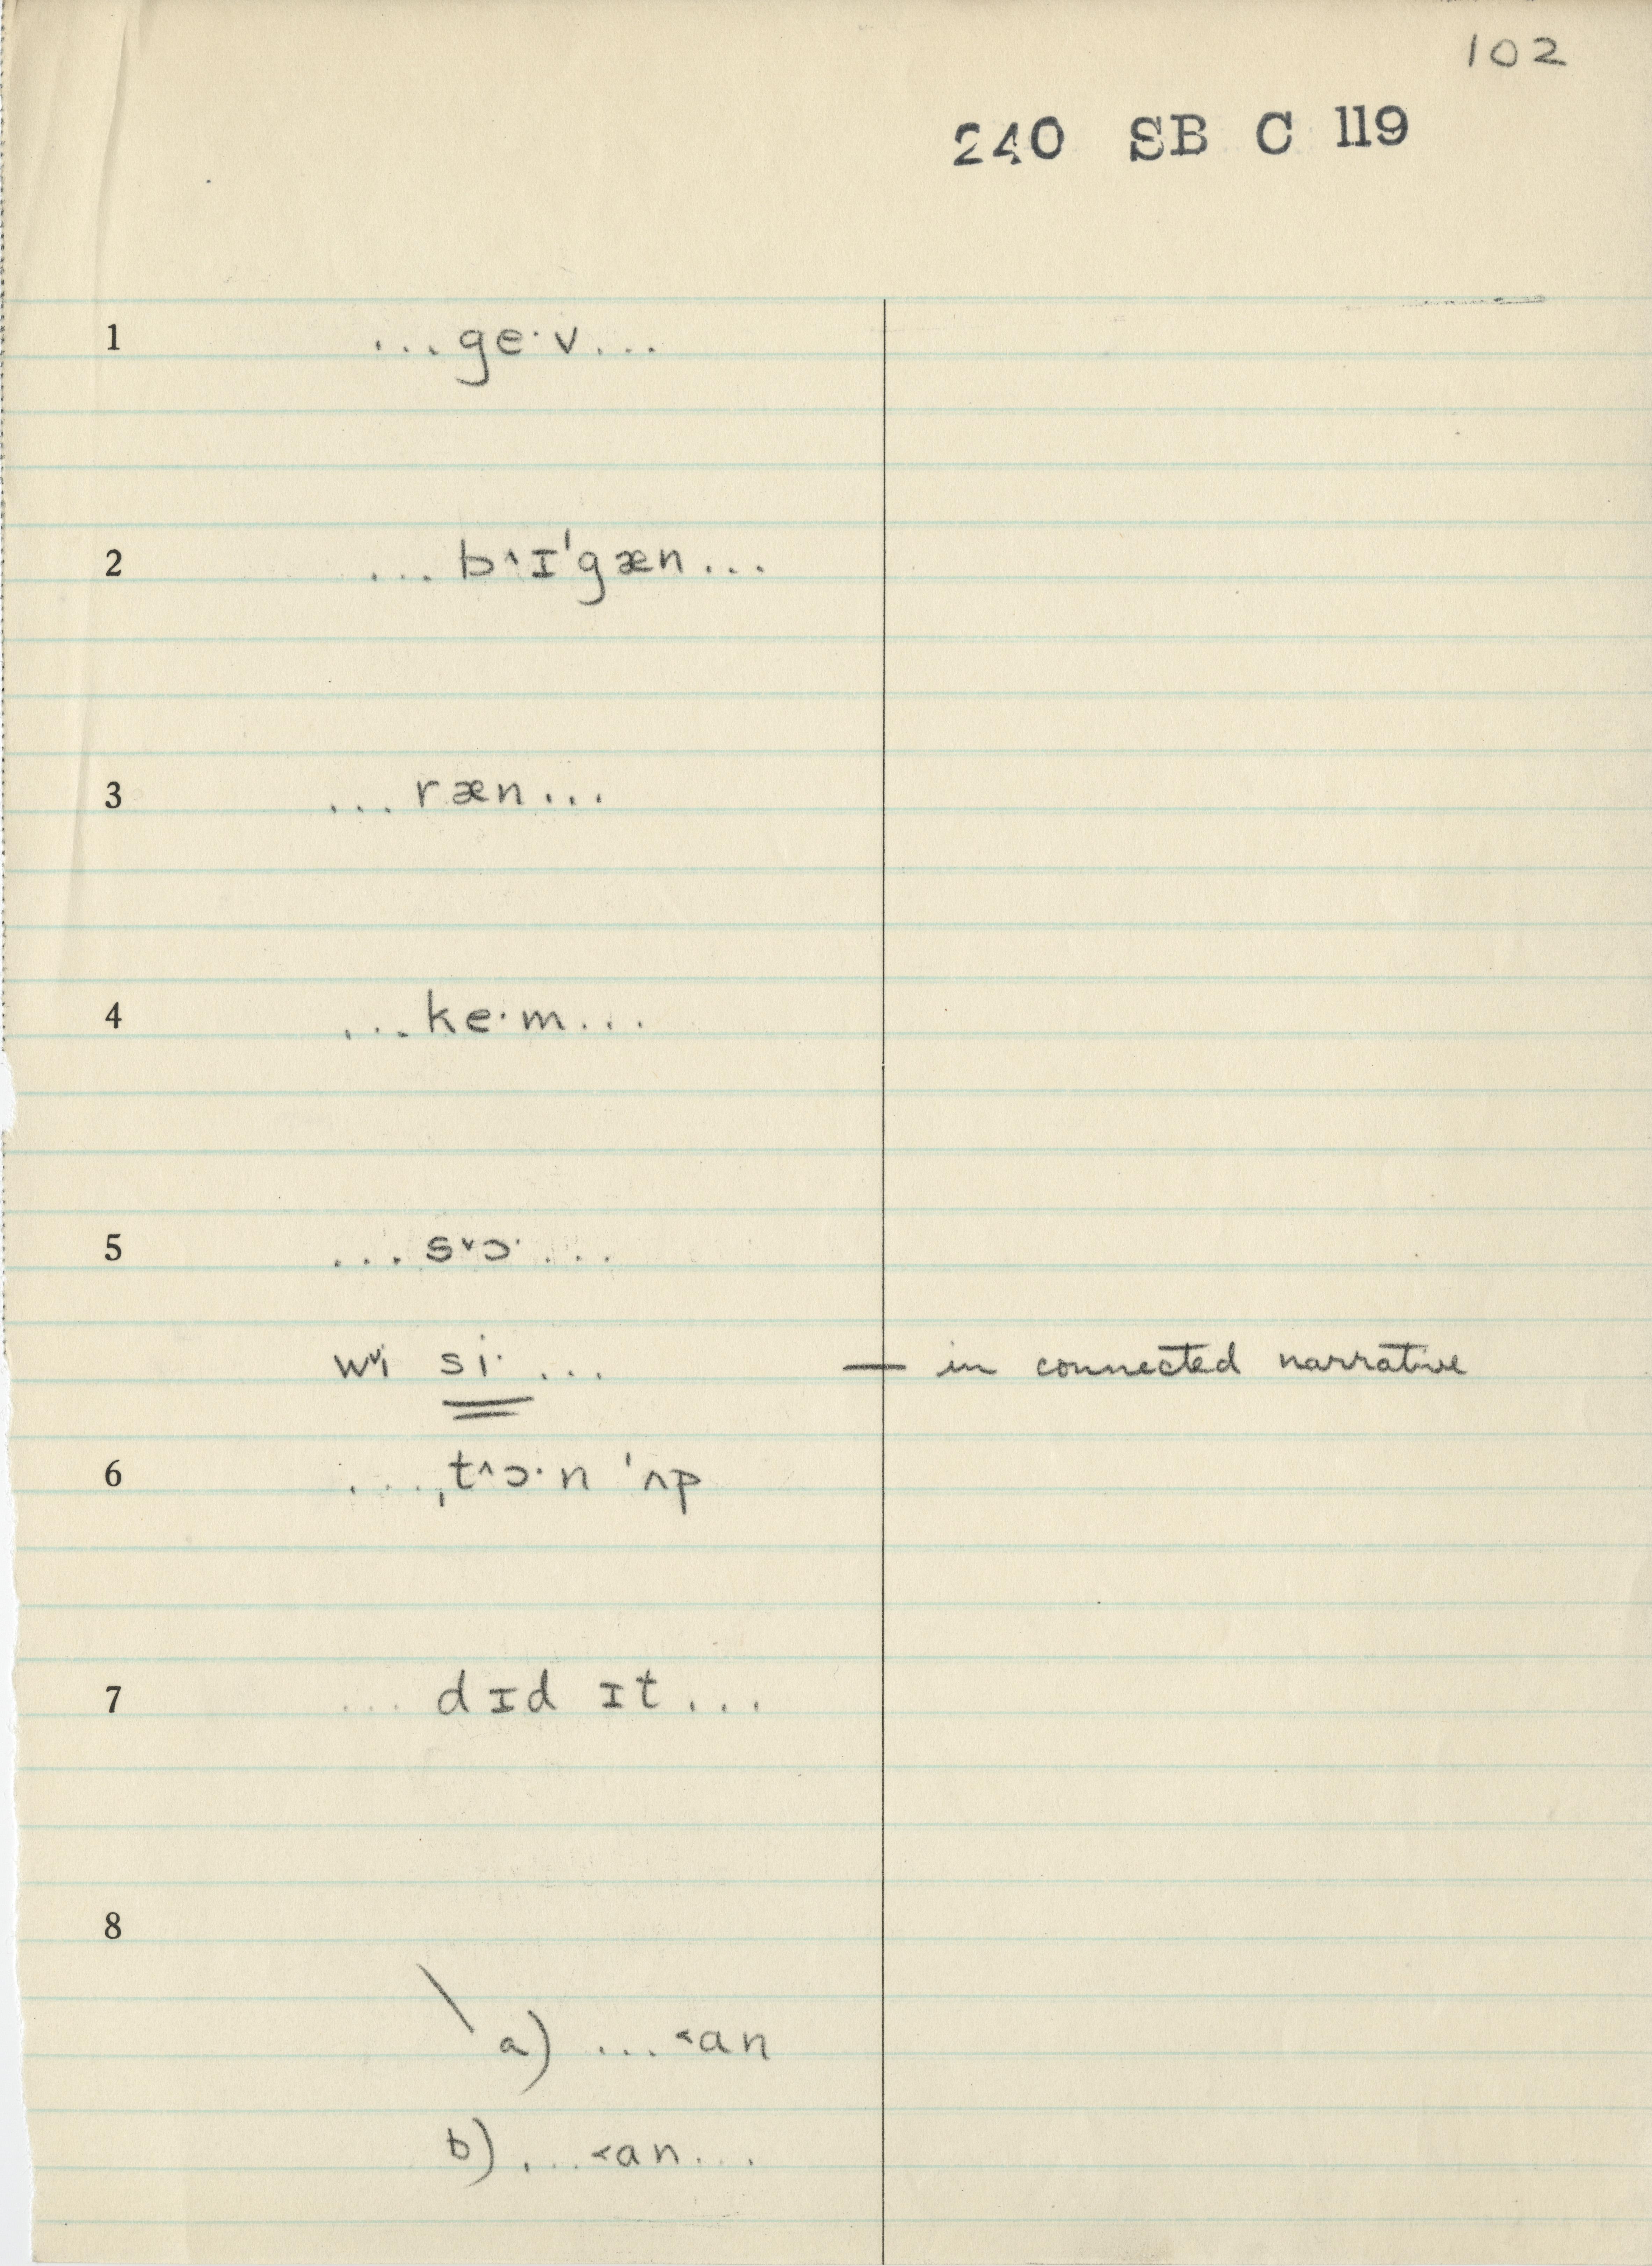 102
240 SB C 119
1 ...ge·v...
2 ...b˄ɪˈgæn...
3 ...ræn...
4 ...ke·m...
5 ...s˅ɔ·...
w˅i si·... — in connected narrative
6 ...ˌt˄ɔ·n ˈʌp
7 ...dɪd ɪt...
8
\ a) ...˂an
b) ...˂an...